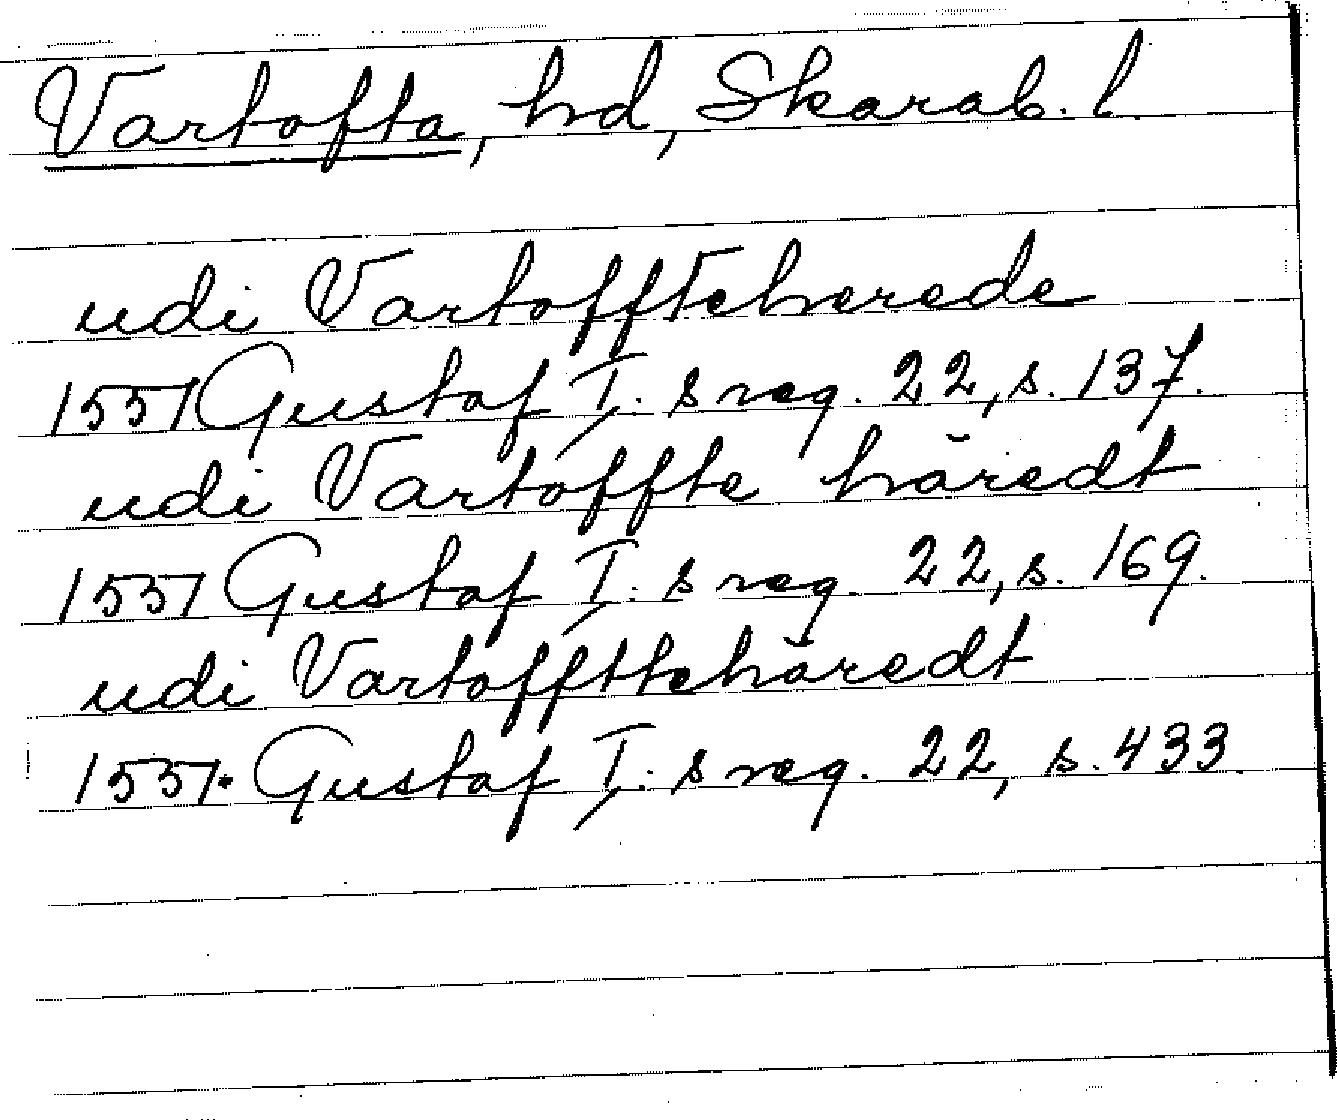 Vartofta, hd, Skarab. l.
udi Vartoffteherede
1551 Gustaf I:s reg. 22, s. 137.
udi Vartoffte häredt
1551 Gustaf I:s reg. 22, s. 169.
udi Vartoffttehäredt
1551. Gustaf I:s reg. 22, s. 433